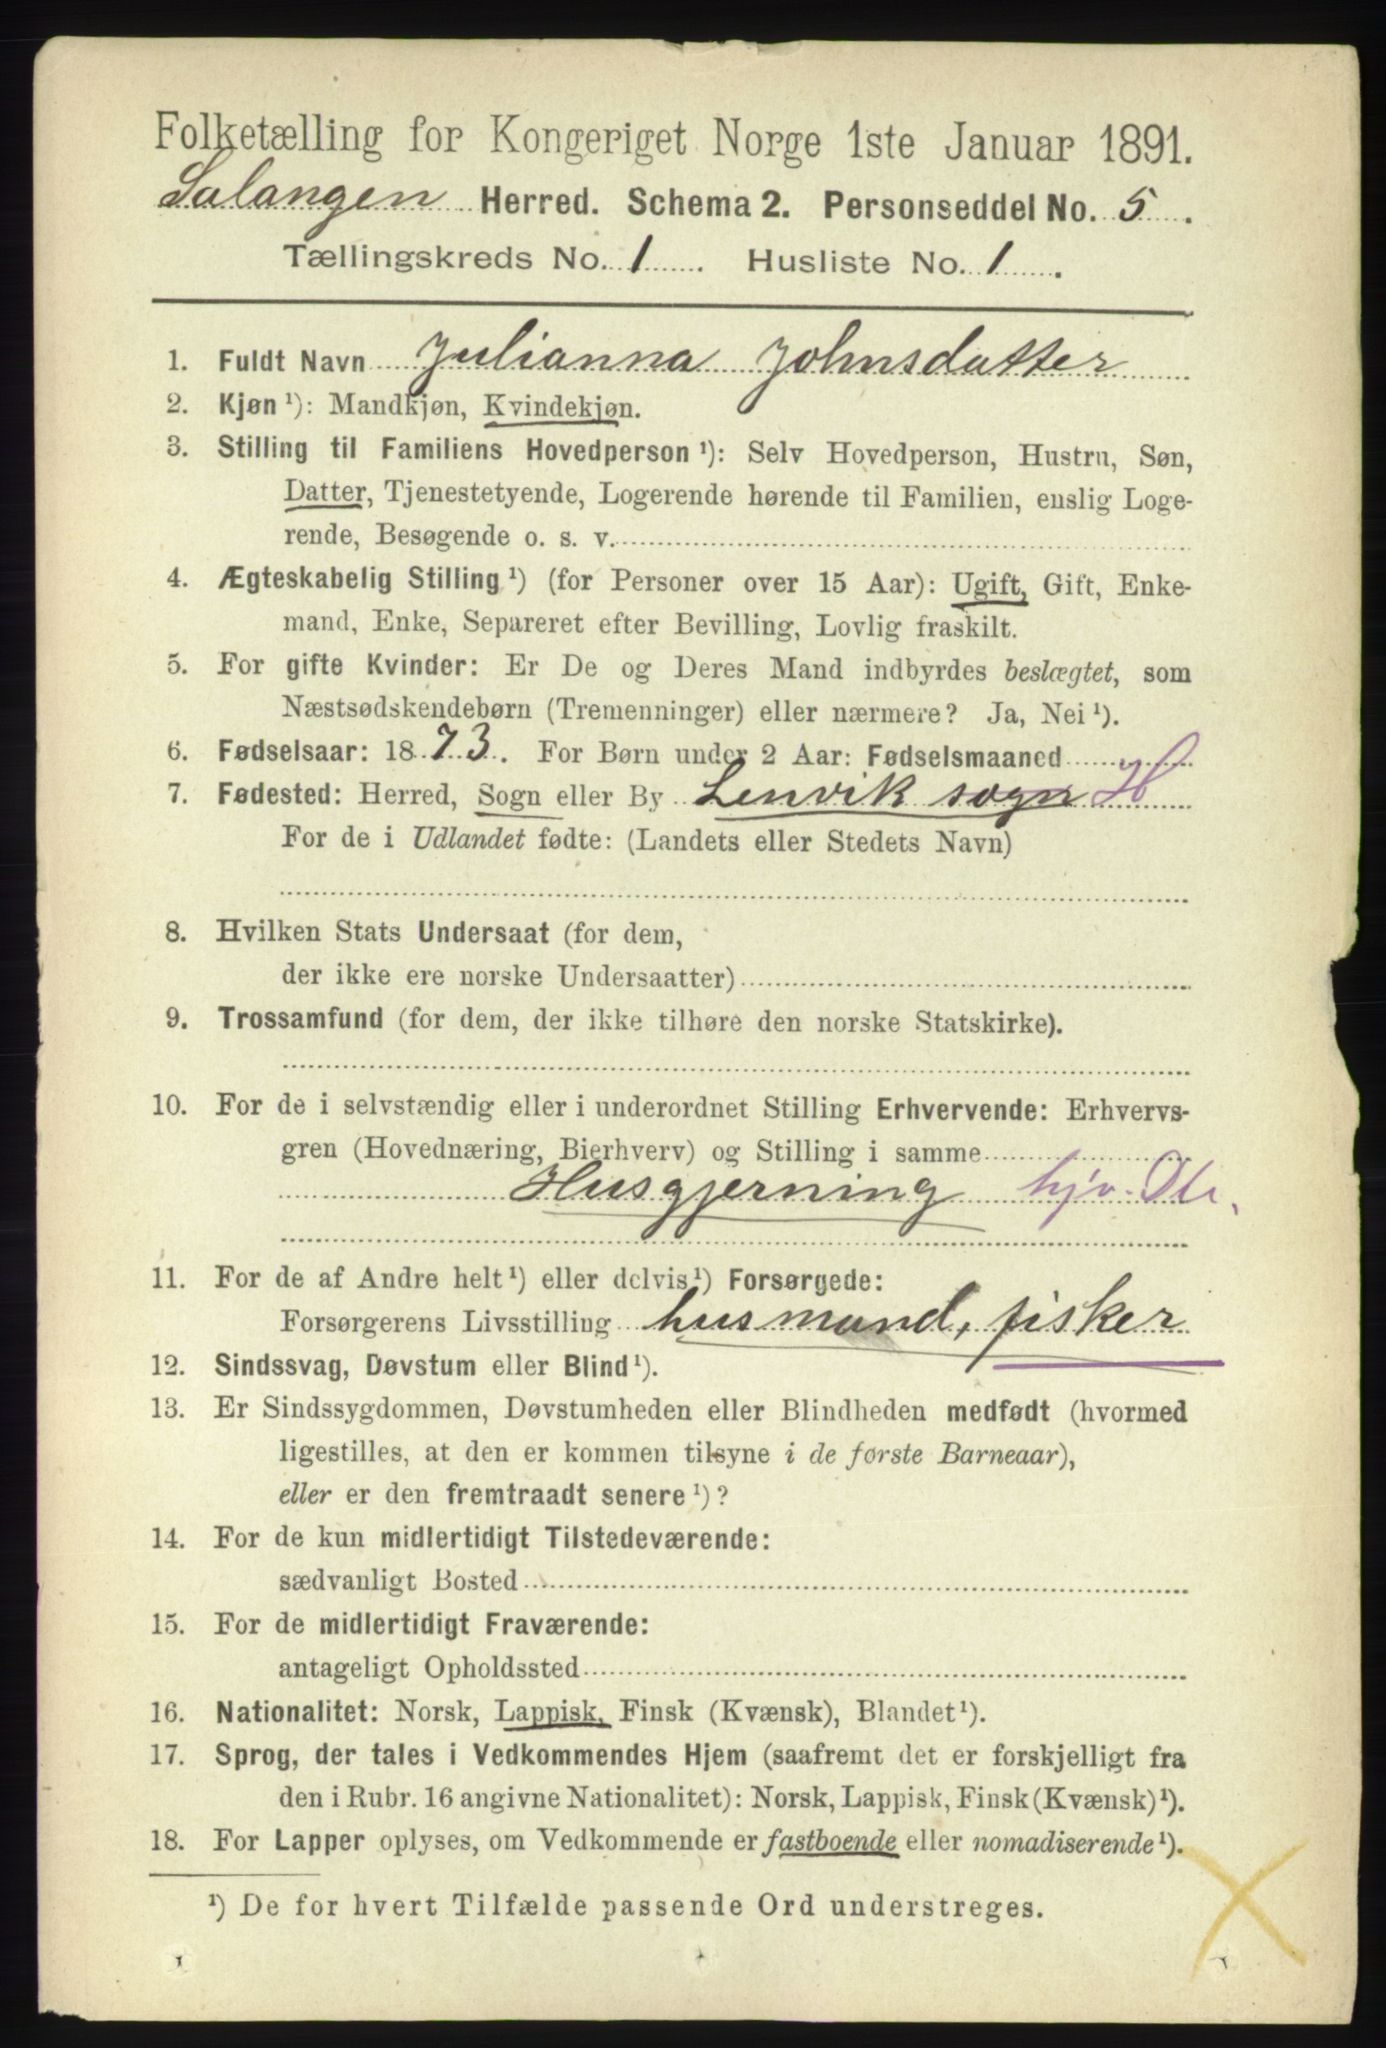 Folketælling for Kongeriget Norge 1ste Januar 1891.
Salangen Herred. Schema 2. Personseddel No. 5.
Tællingskreds No. 1. Husliste No. 1.
1. Fuldt Navn Julianna Johnsdatter
2. Kjøn ¹): Mandkjøn, Kvindekjøn.
3. Stilling til Familiens Hovedperson ¹): Selv Hovedperson, Hustru, Søn,
Datter, Tjenestetyende, Logerende hørende til Familien, enslig Loge-
rende, Besøgende o. s. v.
4. Ægteskabelig Stilling ¹) (for Personer over 15 Aar): Ugift, Gift, Enke-
mand, Enke, Separeret efter Bevilling, Lovlig fraskilt.
5. For gifte Kvinder: Er De og Deres Mand indbyrdes beslægtet, som
Næstsødskendebørn (Tremenninger) eller nærmere? Ja, Nei ¹).
6. Fødselsaar: 1873. For Børn under 2 Aar: Fødselsmaaned
7. Fødested: Herred, Sogn eller By Lenvik sogn H
For de i Udlandet fødte: (Landets eller Stedets Navn)
8. Hvilken Stats Undersaat (for dem,
der ikke ere norske Undersaatter)
9. Trossamfund (for dem, der ikke tilhøre den norske Statskirke).
10. For de i selvstændig eller i underordnet Stilling Erhvervende: Erhvervs-
gren (Hovednæring, Bierhverv) og Stilling i samme
Husgjerning hjv.
11. For de af Andre helt ¹) eller delvis ¹) Forsørgede:
Forsørgerens Livsstilling husmand, fisker
12. Sindssvag, Døvstum eller Blind ¹).
13. Er Sindssygdommen, Døvstumheden eller Blindheden medfødt (hvormed
ligestilles, at den er kommen tilsyne i de første Barneaar),
eller er den fremtraadt senere ¹)?
14. For de kun midlertidigt Tilstedeværende:
sædvanligt Bosted
15. For de midlertidigt Fraværende:
antageligt Opholdssted
16. Nationalitet: Norsk, Lappisk, Finsk (Kvænsk), Blandet ¹).
17. Sprog, der tales i Vedkommendes Hjem (saafremt det er forskjelligt fra
den i Rubr. 16 angivne Nationalitet): Norsk, Lappisk, Finsk (Kvænsk) ¹).
18. For Lapper oplyses, om Vedkommende er fastboende eller nomadiserende ¹).
¹) De for hvert Tilfælde passende Ord understreges.